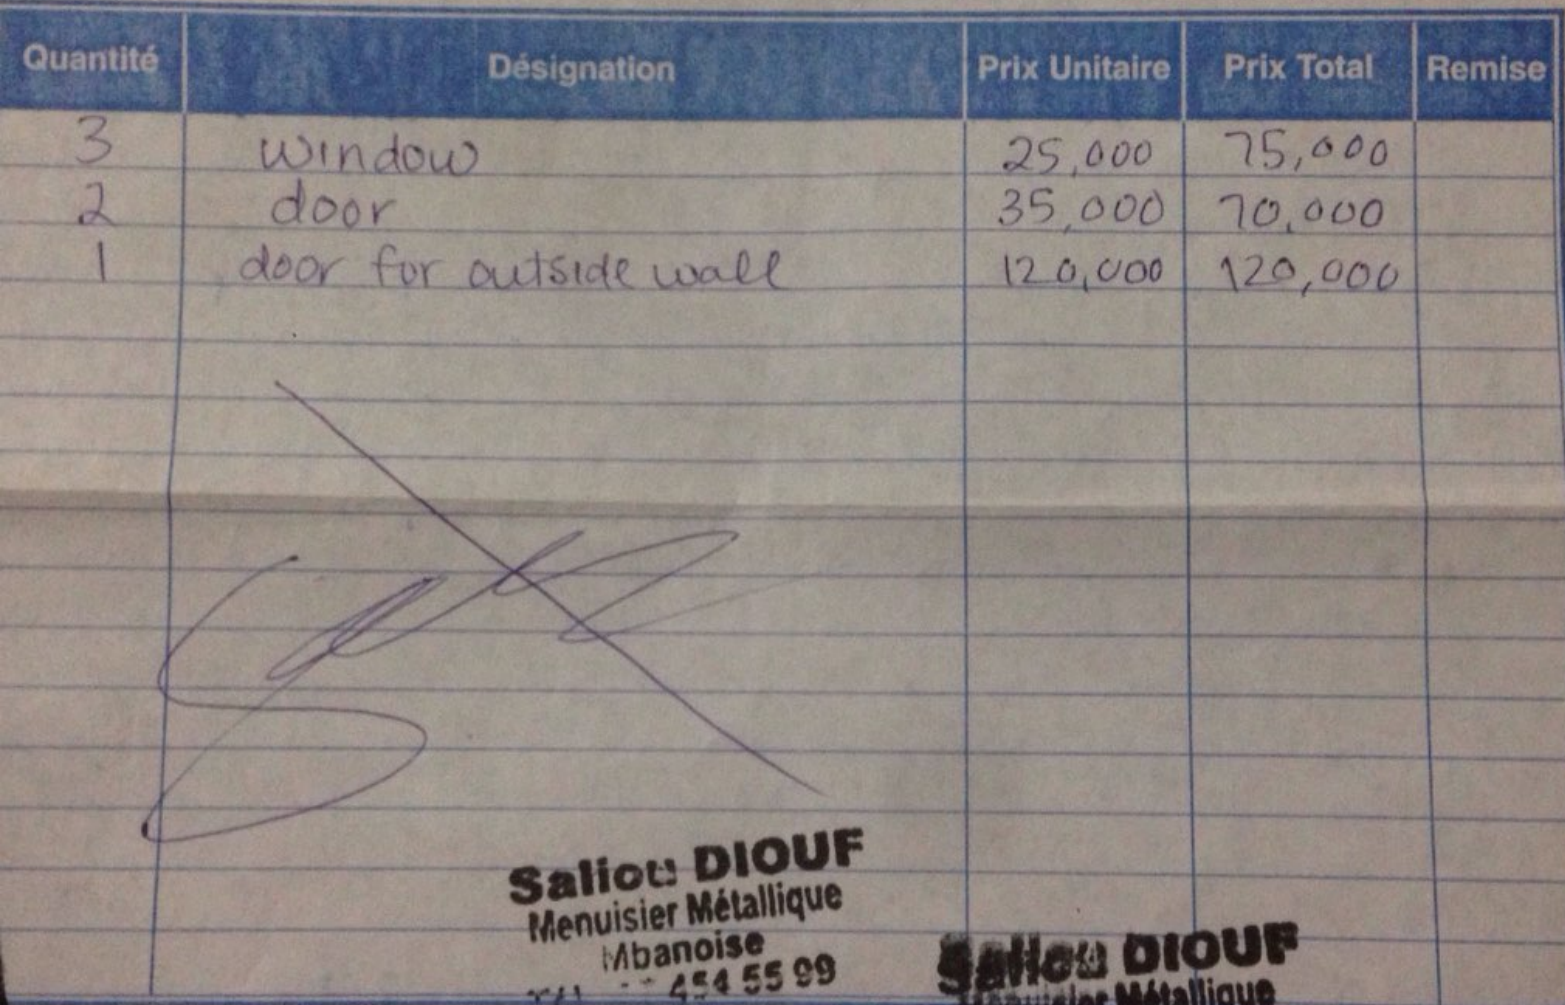 Quantité Désignation Prix Unitaire Prix Total Remise
3 window 25,000 75,000
2 door 35,000 70,000
1 door for outside wall 120,000 120,000
Saliou DIOUF
Menuisier Métallique
Mbanoise
454 55 99
Saliou DIOUF
Menuisier Métallique